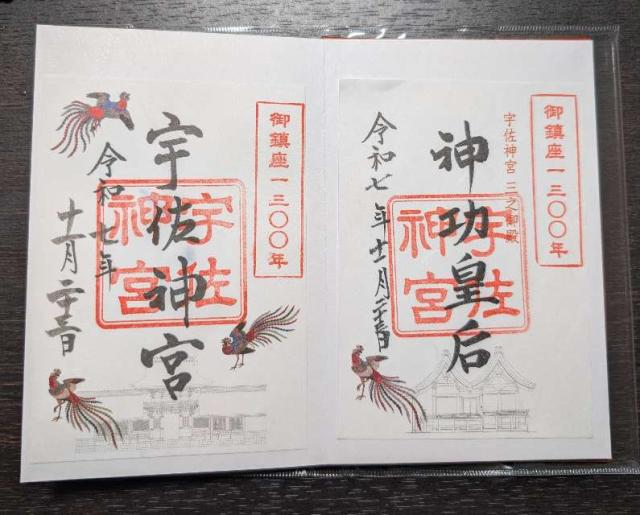 御鎮座一三〇〇年
宇佐神宮 三之御殿
神功皇后
宇佐
神宮
令和七年十一月二十三日
御鎮座一三〇〇年
宇佐神宮
宇佐
神宮
令和七年
十一月二十三日